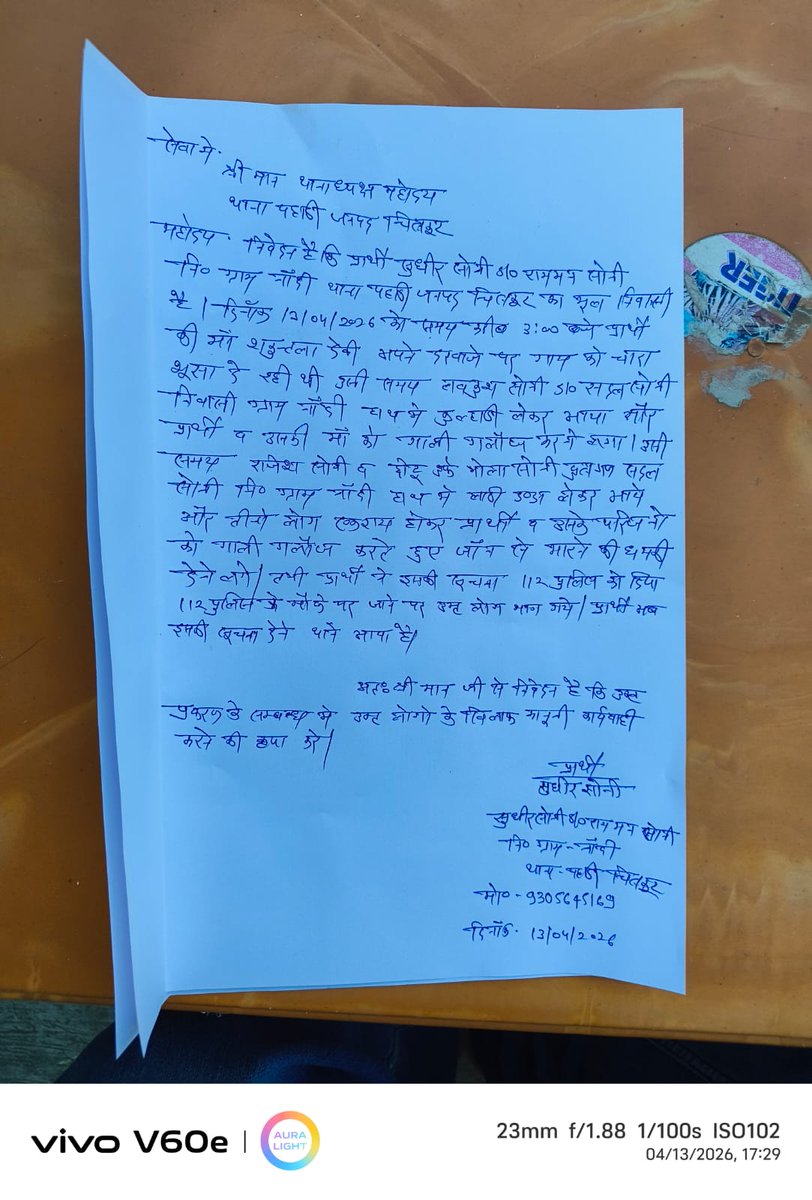 सेवा में.
श्री मान थानाध्यक्ष महोदय
थाना पहाडी जनपद चित्रकूट
महोदय. निवेदन है कि प्रार्थी सुधीर सोनी s/o राममन सोनी
नि० ग्राम नाँदी थाना पहाडी जनपद चित्रकूट का मूल निवासी
है। दिनाँक 12/04/2026 को समय करीब 3:00 बजे प्रार्थी
की माँ शकुन्तला देवी अपने दरवाजे पर गाय को चारा
भूसा दे रही थी उसी समय लवकुश सोनी s/o सोनी
निवासी ग्राम नाँदी हाथ में कुल्हाडी लेकर आया और
प्रार्थी व उसकी माँ को गाली गलौच करने लगा। इसी
समय राजेश सोनी व छोटू उर्फ भोला सोनी पुत्रगण
सोनी नि० ग्राम नाँदी हाथ में लाठी डण्डा लेकर आये
और तीनो लोग एकराय होकर प्रार्थी व उसके परिजनो
को गाली गलौज करते हुए जाँन से मारने की धमकी
देने लगे। तभी प्रार्थी ने इसकी सूचना 112 पुलिस को दिया
112 पुलिस के मौके पर जाने पर उक्त लोग भाग गये। प्रार्थी अब
इसकी सूचना देने थाने आया है।
अतः श्री मान जी से निवेदन है कि उक्त
प्रकरण के सम्बन्ध में उक्त लोगो के खिलाफ कानूनी कार्यवाही
करने की कृपा करे।
प्रार्थी
सुधीर सोनी
सुधीर सोनी s/o राममन सोनी
नि० ग्राम - नाँदी
थाना - पहाडी चित्रकूट
मो० - 9305645169
दिनाँक. 13/04/2026
TIGER
vivo V60e | AURA LIGHT
23mm f/1.88 1/100s ISO102
04/13/2026, 17:29